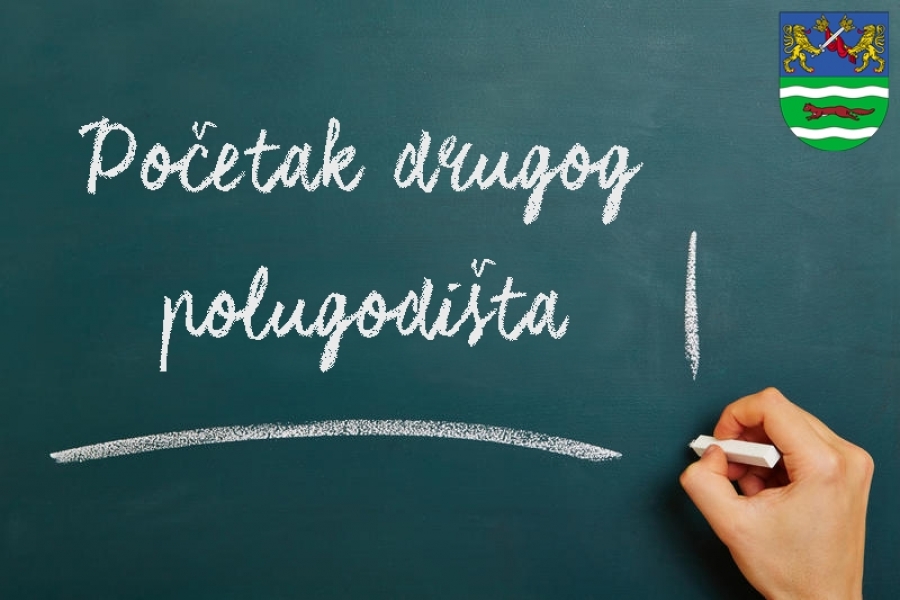 Početak drugog
polugodišta